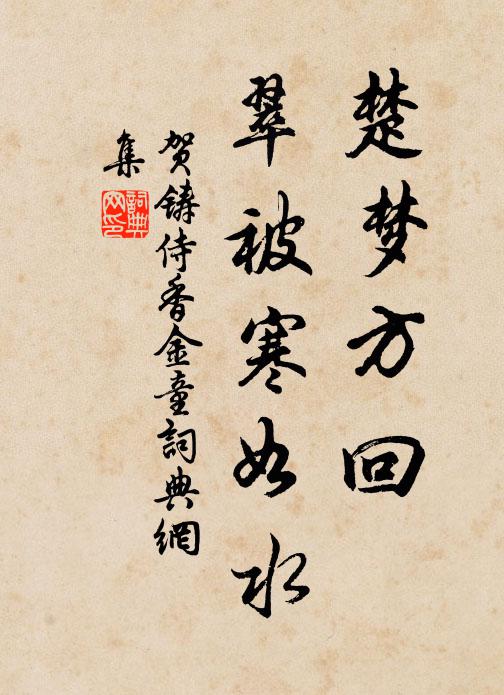 楚梦方回
翠被寒如水
贺铸侍香金童詞典網
集
詞典
网印